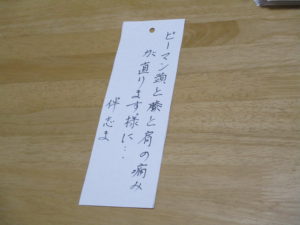 ピーマン頭と膝と肩の痛み
が直ります様に…
伴志ま